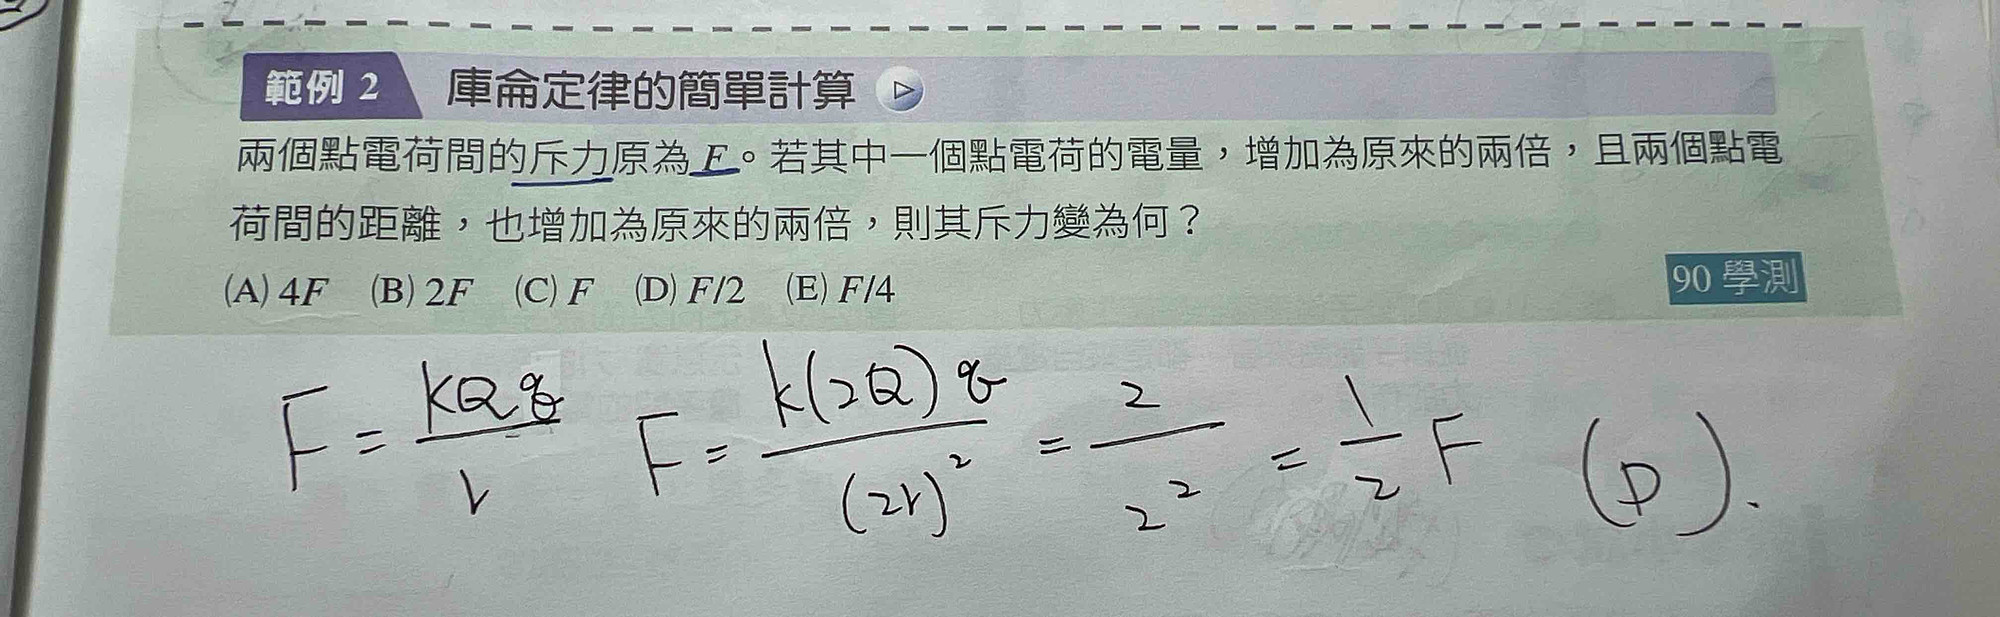 範例 2 庫侖定律的簡單計算
兩個點電荷間的斥力原為 F。若其中一個點電荷的電量，增加為原來的兩倍，且兩個點電
荷間的距離，也增加為原來的兩倍，則其斥力變為何？
(A) 4F (B) 2F (C) F (D) F/2 (E) F/4
90 學測
F = kQq/r F = k(2Q)q/(2r)² = 2/2² = 1/2 F (D).